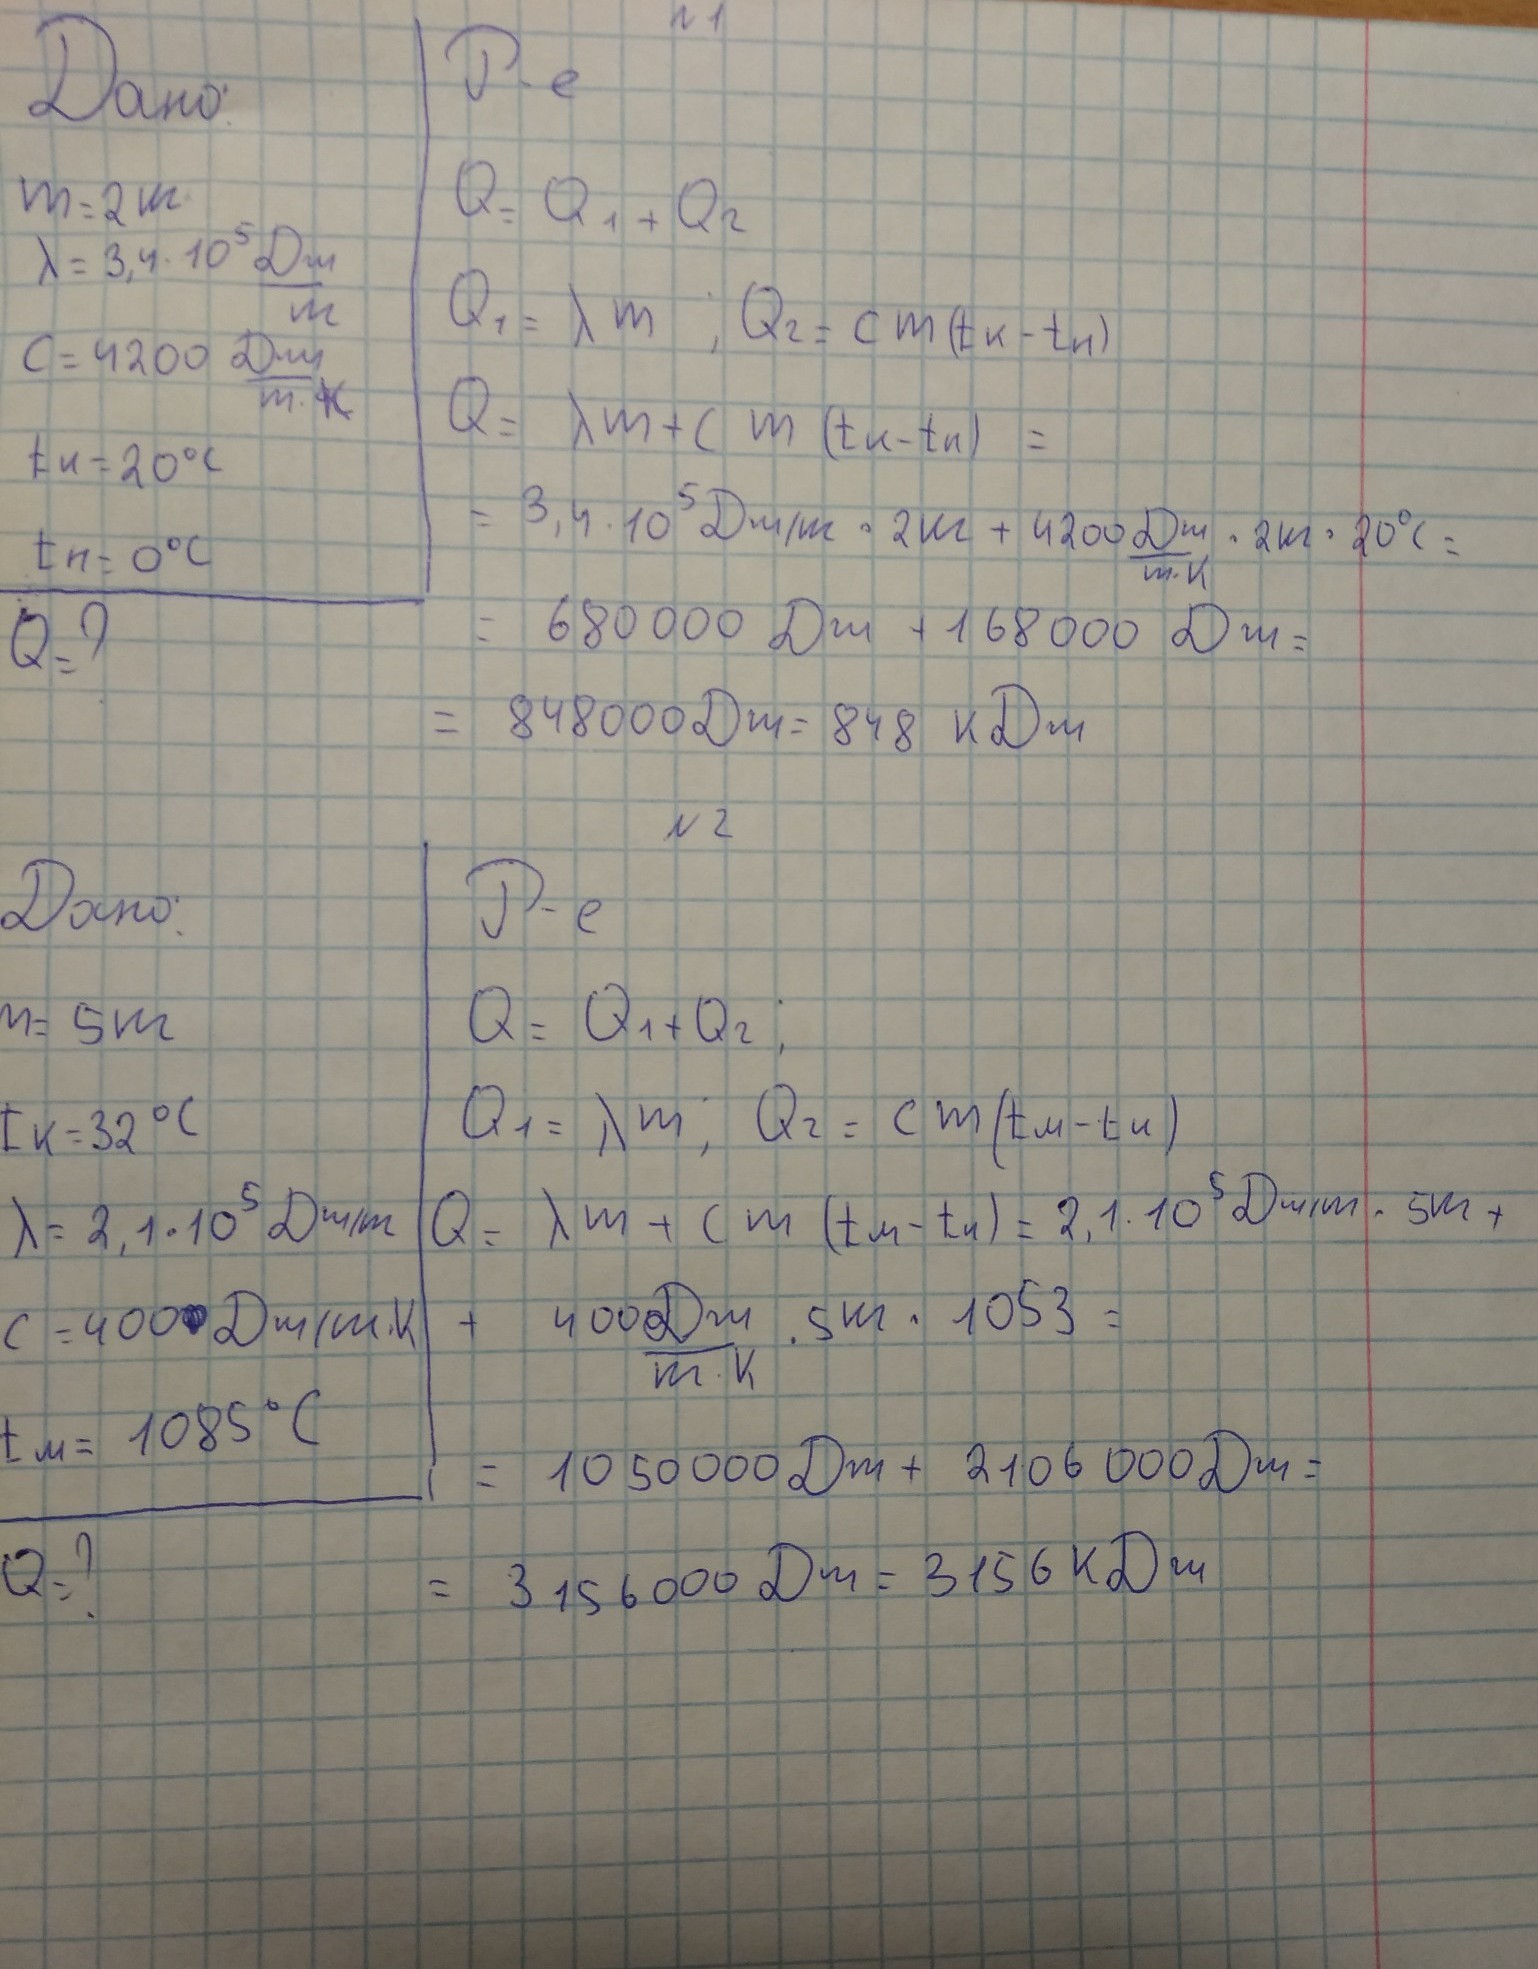 №1
Дано:
m=2кг
λ=3,4·10⁵ Дж/кг
C=4200 Дж/кг·К
tк=20°C
tн=0°C
Q=?
Р-е
Q=Q₁+Q₂
Q₁=λm; Q₂=cm(tк-tн)
Q=λm+cm(tк-tн)=
=3,4·10⁵Дж/кг·2кг+4200Дж/кг·К·2кг·20°C=
=680000Дж+168000Дж=
=848000Дж=848кДж
№2
Дано:
m=5кг
tк=32°C
λ=2,1·10⁵Дж/кг
c=400Дж/кг·К
tм=1085°C
Q=?
Р-е
Q=Q₁+Q₂;
Q₁=λm; Q₂=cm(tм-tк)
Q=λm+cm(tм-tк)=2,1·10⁵Дж/кг·5кг+
+400Дж/кг·К·5кг·1053=
=1050000Дж+2106000Дж=
=3156000Дж=3156кДж